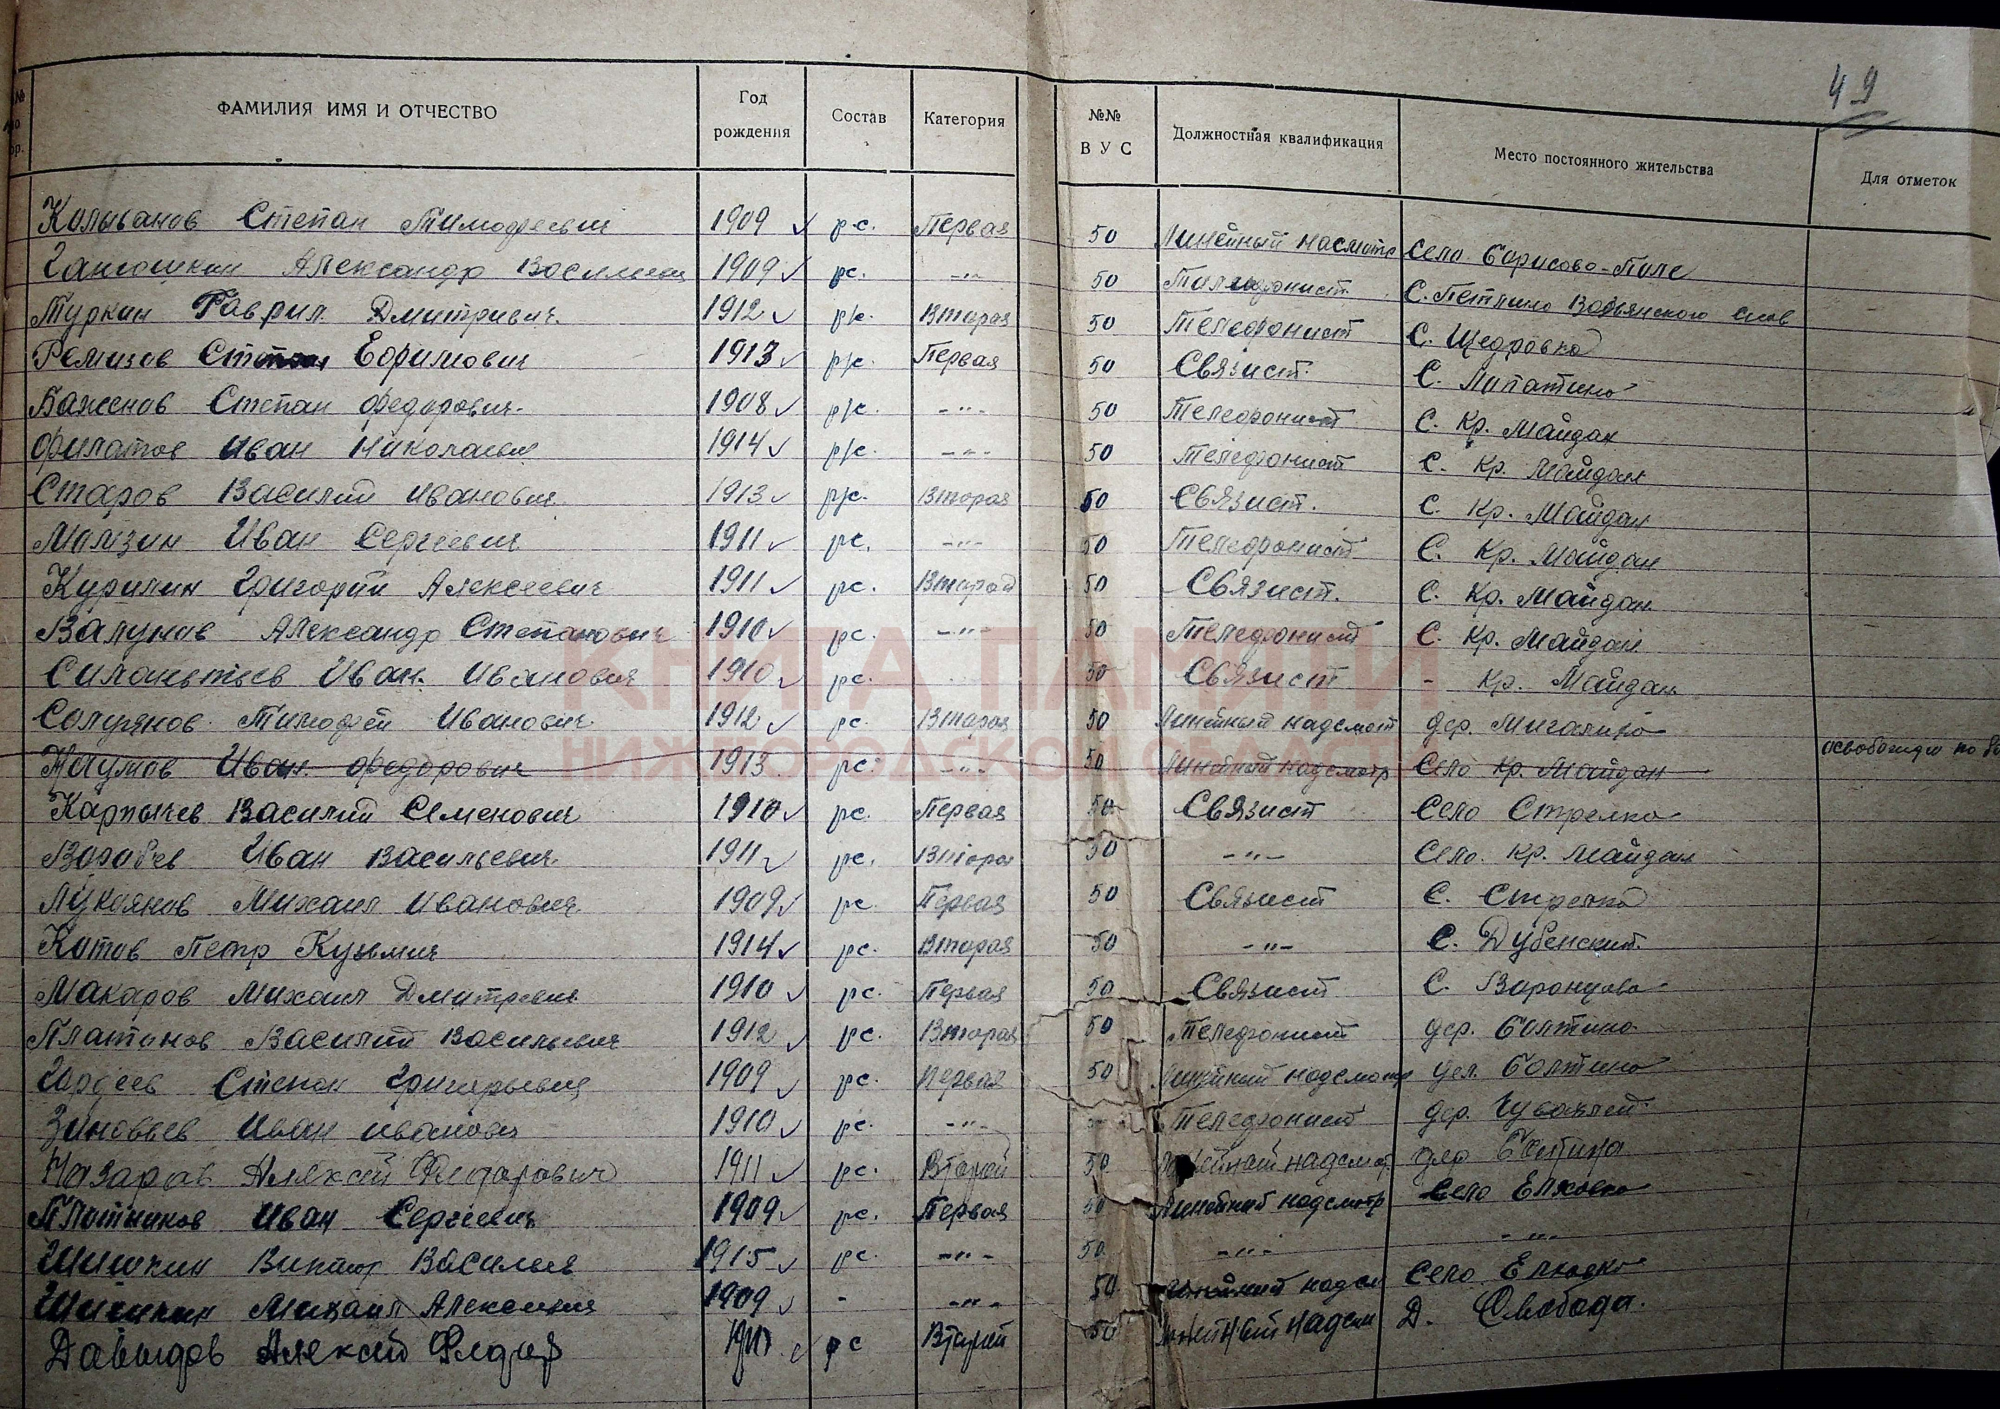 49
№ по пор.
ФАМИЛИЯ ИМЯ И ОТЧЕСТВО Год рождения Состав Категория №№ ВУС Должностная квалификация Место постоянного жительства Для отметок
Колыванов Степан Тимофеевич 1909 р.с. Первая 50 Линейный насмотр Село Борисово-Поле
Александр 1909 рс. -"- 50 Телефонист С.
Туркин Гаврил Дмитривич 1912 р/с. Вторая 50 Телефонист С. Щедровка
Ремизов Степан Ефримович 1913 р/с. Первая 50 Связист. С. Лопатино
Баженов Степан Федорович. 1908 р/с. -"- 50 Телефонист С. Кр. Майдан
Филатов Иван Николаевич 1914 р/с. -"- 50 Телефонист С. Кр. Майдан
Старов Василий Иванович 1913 р/с. Вторая 50 Связист. С. Кр. Майдан
Мамзин Иван Сергеевич 1911 рс. -"- 50 Телефонист С. Кр. Майдан
Курилин Григорий Алексеевич 1911 рс. Вторая 50 Связист. С. Кр. Майдан
Валумов Александр Степанович 1910 рс. -"- 50 Телефонист С. Кр. Майдан
Иван. Иванович 1910 рс. 50 Связист - Кр. Майдан
Тимофей Иванович 1912 рс. Вторая 50 Линейный надсмот дер. Мигалиха
Наумов Иван Федорович 1913 рс. -"- 50 Линейный надсмотр Село Кр. Майдан
Карпычев Василий Семенович 1910 рс. Первая 50 Связист Село Стрелка
Иван Васильевич 1911 рс. Втора 50 -"- Село. Кр. Майдан
Лукоянов Михаил Иванович 1909 рс. Первая 50 Связист С. Стрелка
Котов Петр Кузьмич 1914 рс. Вторая 50 -"- С. Дубенский.
Макаров Михаил Дмитревич 1910 рс. Первая 50 Связист С.
Платонов Василий Васильевич 1912 рс. Вторая 50 Телефонист дер. Болтино
Гордеев Степан Григорьевич 1909 рс. Первая 50 Линейный надсмотр дел. Болтино
Зиновьев Иван Иванович 1910 рс. -"- Телефонист дер.
Назаров Алексей Федорович 1911 рс. Второй 50 надсмот дер
Плотников Иван Сергеевич 1909 рс. Первая 50 Линейный надсмотр Село Елховка
Шишкин Виктор Василье 1915 рс. -"- 50. -"- -"-
Шишкин Михаил Алексеевич 1909 - -"- 50 надсм Село Елховка
Давыдов Алексей Федор рс Второй 50 надсм Д. Слобода.
КНИГА ПАМЯТИ
НИЖЕГОРОДСКОЙ ОБЛАСТИ